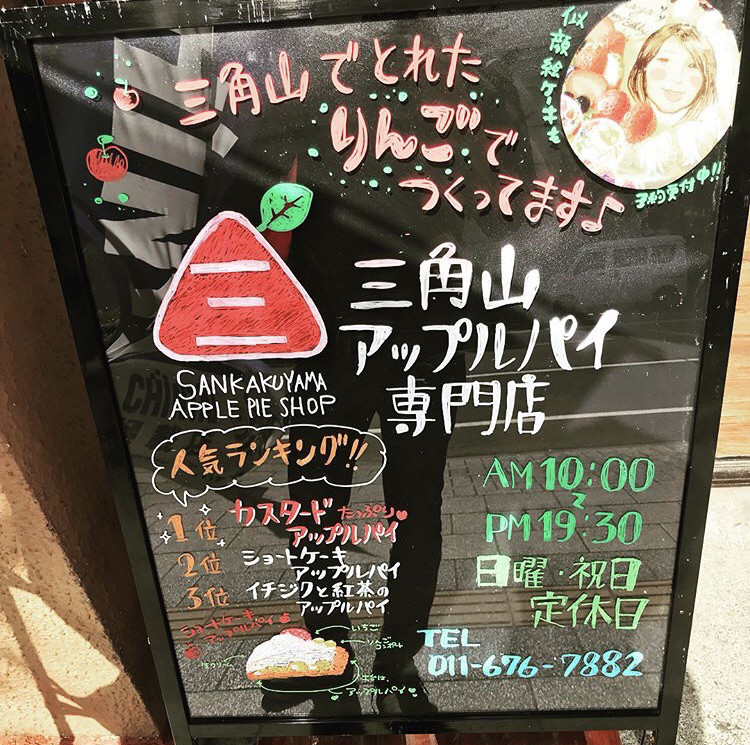 三角山でとれた
りんごで
つくってます♪
似顔絵ケーキも
予約受付中!!
三
SANKAKUYAMA
APPLE PIE SHOP
三角山
アップルパイ
専門店
人気ランキング!!
1位 カスタードたっぷり
アップルパイ
2位 ショートケーキ
アップルパイ
3位 イチジクと紅茶の
アップルパイ
AM10:00
~
PM19:30
日曜・祝日
定休日
TEL
011-676-7882
ショートケーキ
アップルパイ
いちご
りんご
コンポート
生クリーム
アップルパイ